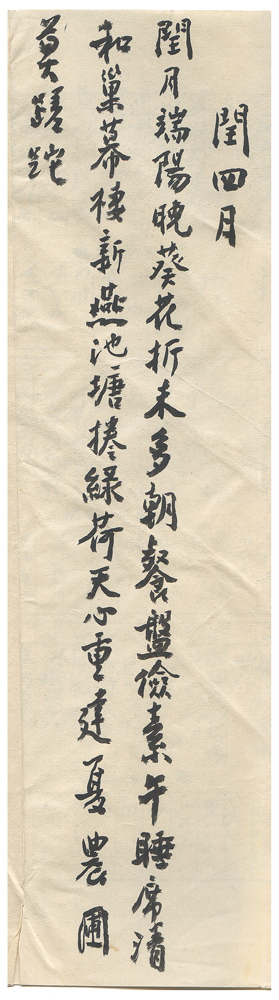 閏四月
閏月端陽晚葵花折未多朝餐盤儉素午睡席清
和巢幕棲新燕池塘捲綠荷天心重建夏農圃
莫蹉跎